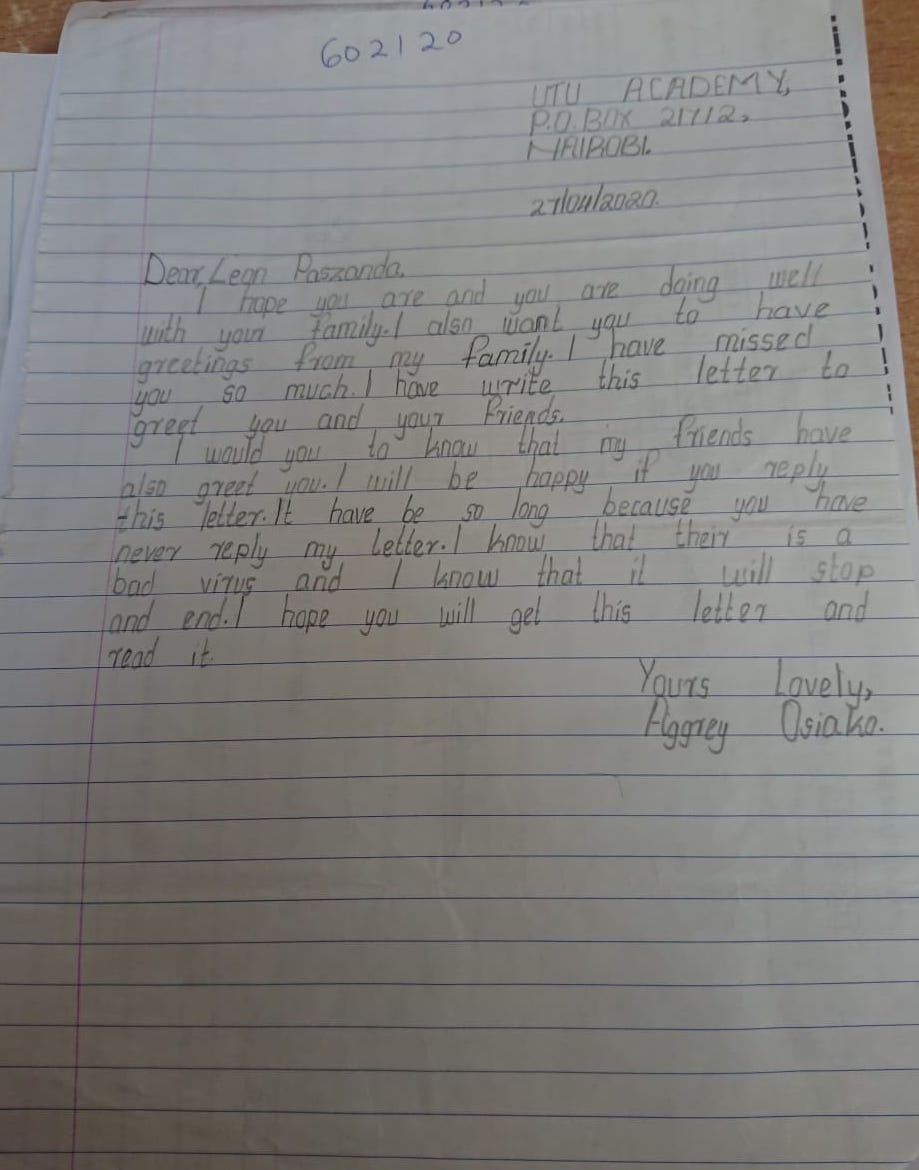 602120
UTU ACADEMY,
P.O. BOX 21712,
NAIROBI.
27/04/2020.
Dear, Leon Paszanda.
I hope you are and you are doing well
with your family. I also want you to have
greetings from my family. I have missed
you so much. I have write this letter to
greet you and your friends.
I would you to know that my friends have
also greet you. I will be happy if you reply
this letter. It have be so long because you have
never reply my letter. I know that their is a
bad virus and I know that it will stop
and end. I hope you will get this letter and
read it.
Yours Lovely,
Aggrey Osiako.